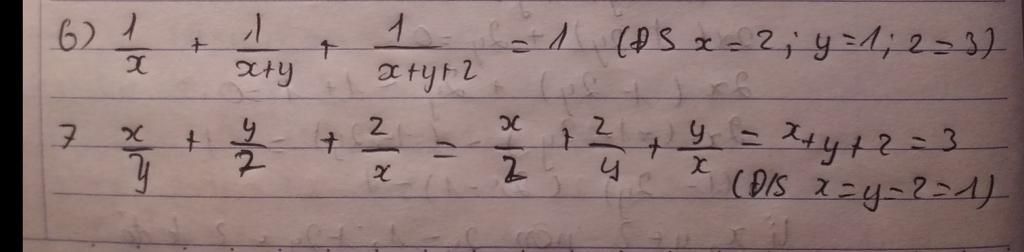 6) 1/x + 1/(x+y) + 1/(x+y+z) = 1 (ĐS x = 2; y = 1; z = 3)
7 x/y + y/z + z/x = x/z + z/y + y/x = x + y + z = 3
(Đ/S x = y = z = 1)